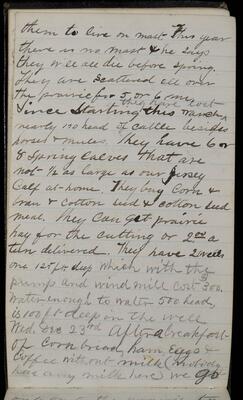 them to live on mast. This year
there is no mast & he says
they will all die before Spring.
They are scattered all over
the prairie for 5 or 6 mi.
they have lost
Since Starting this ranch
nearly 190 head of cattle besides
horses & mules. They have 6 or
8 Spring Calves that are
not ½ as large as our Jersey
Calf at home. They buy Corn &
bran & cotton seed & cotton seed
meal. They Can get prairie
hay for the cutting or 2.00 a
ton delivered. They have 2 wells
one 125 ft deep which with the
pump and wind mill cost 300.
Water enough to water 500 head,
is 100 ft deep in the well
Wed. Dec 23rd After a breakfast
of Corn bread, ham, Eggs &
Coffee without milk (nobody
has any milk here) we go